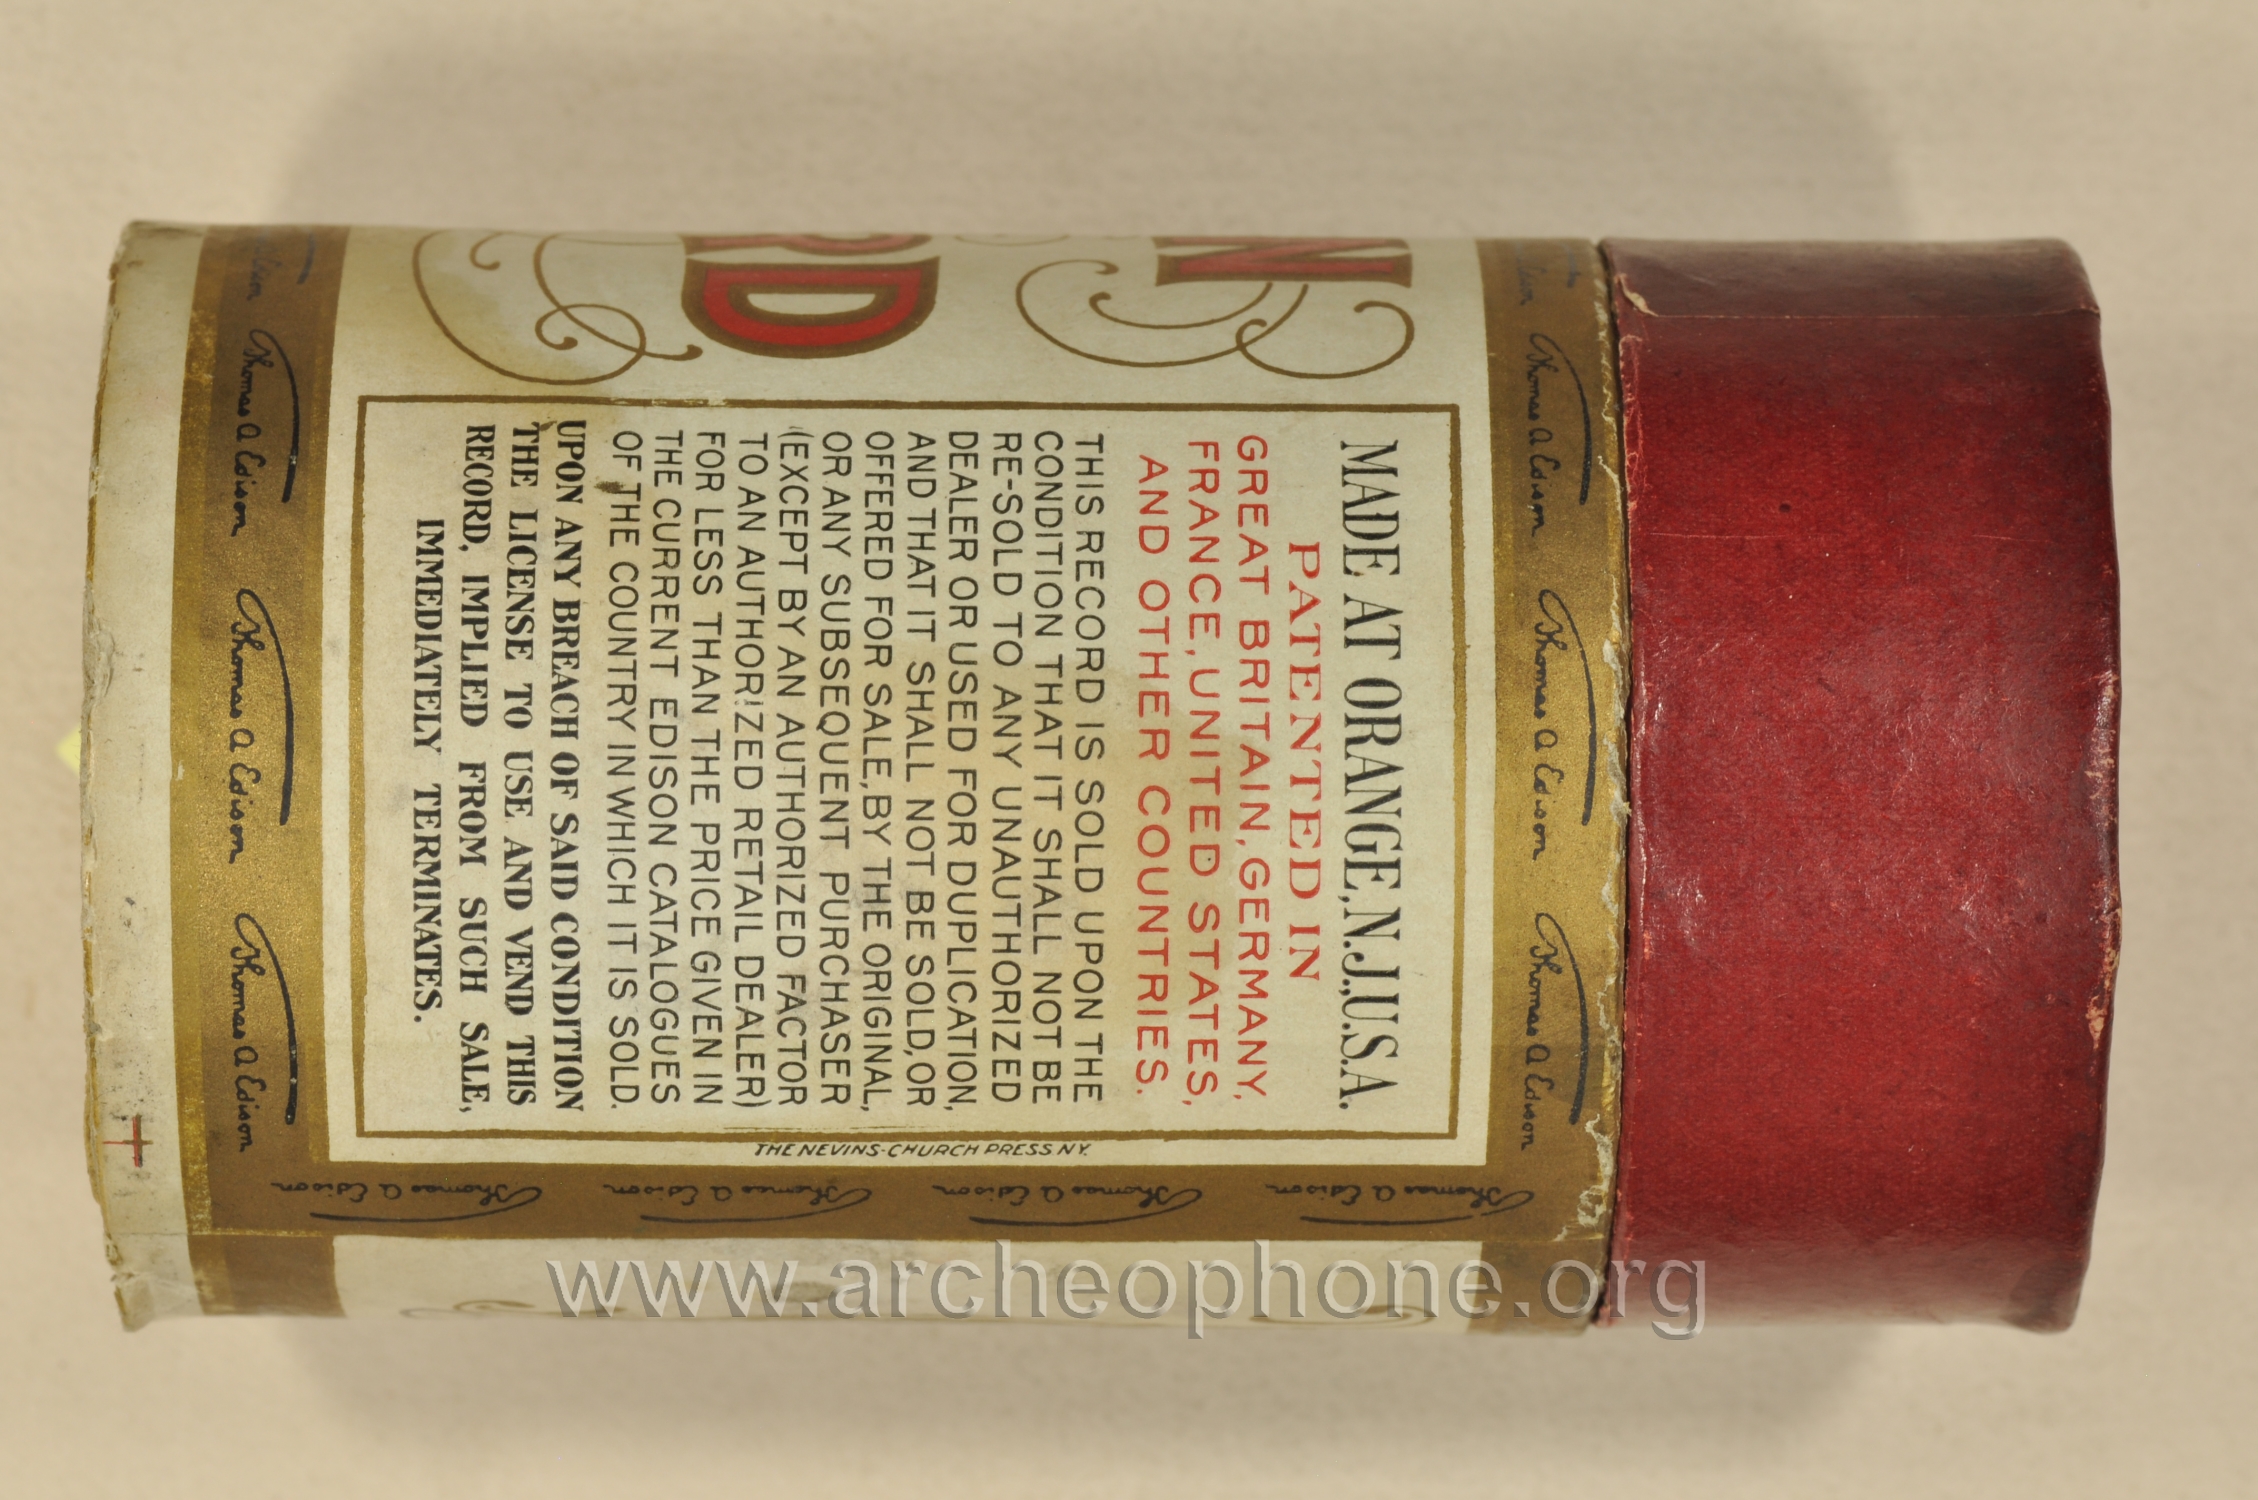 N
RD
MADE AT ORANGE, N.J., U.S.A.
PATENTED IN
GREAT BRITAIN, GERMANY,
FRANCE, UNITED STATES,
AND OTHER COUNTRIES.
THIS RECORD IS SOLD UPON THE
CONDITION THAT IT SHALL NOT BE
RE-SOLD TO ANY UNAUTHORIZED
DEALER OR USED FOR DUPLICATION,
AND THAT IT SHALL NOT BE SOLD, OR
OFFERED FOR SALE, BY THE ORIGINAL,
OR ANY SUBSEQUENT PURCHASER
(EXCEPT BY AN AUTHORIZED FACTOR
TO AN AUTHORIZED RETAIL DEALER)
FOR LESS THAN THE PRICE GIVEN IN
THE CURRENT EDISON CATALOGUES
OF THE COUNTRY IN WHICH IT IS SOLD.
UPON ANY BREACH OF SAID CONDITION
THE LICENSE TO USE AND VEND THIS
RECORD, IMPLIED FROM SUCH SALE,
IMMEDIATELY TERMINATES.
THE NEVINS-CHURCH PRESS N.Y.
Thomas A Edison
Thomas A Edison
Thomas A Edison
Thomas A Edison
Thomas A Edison
Thomas A Edison
Thomas A Edison
Thomas A Edison
Thomas A Edison
Thomas A Edison
www.archeophone.org